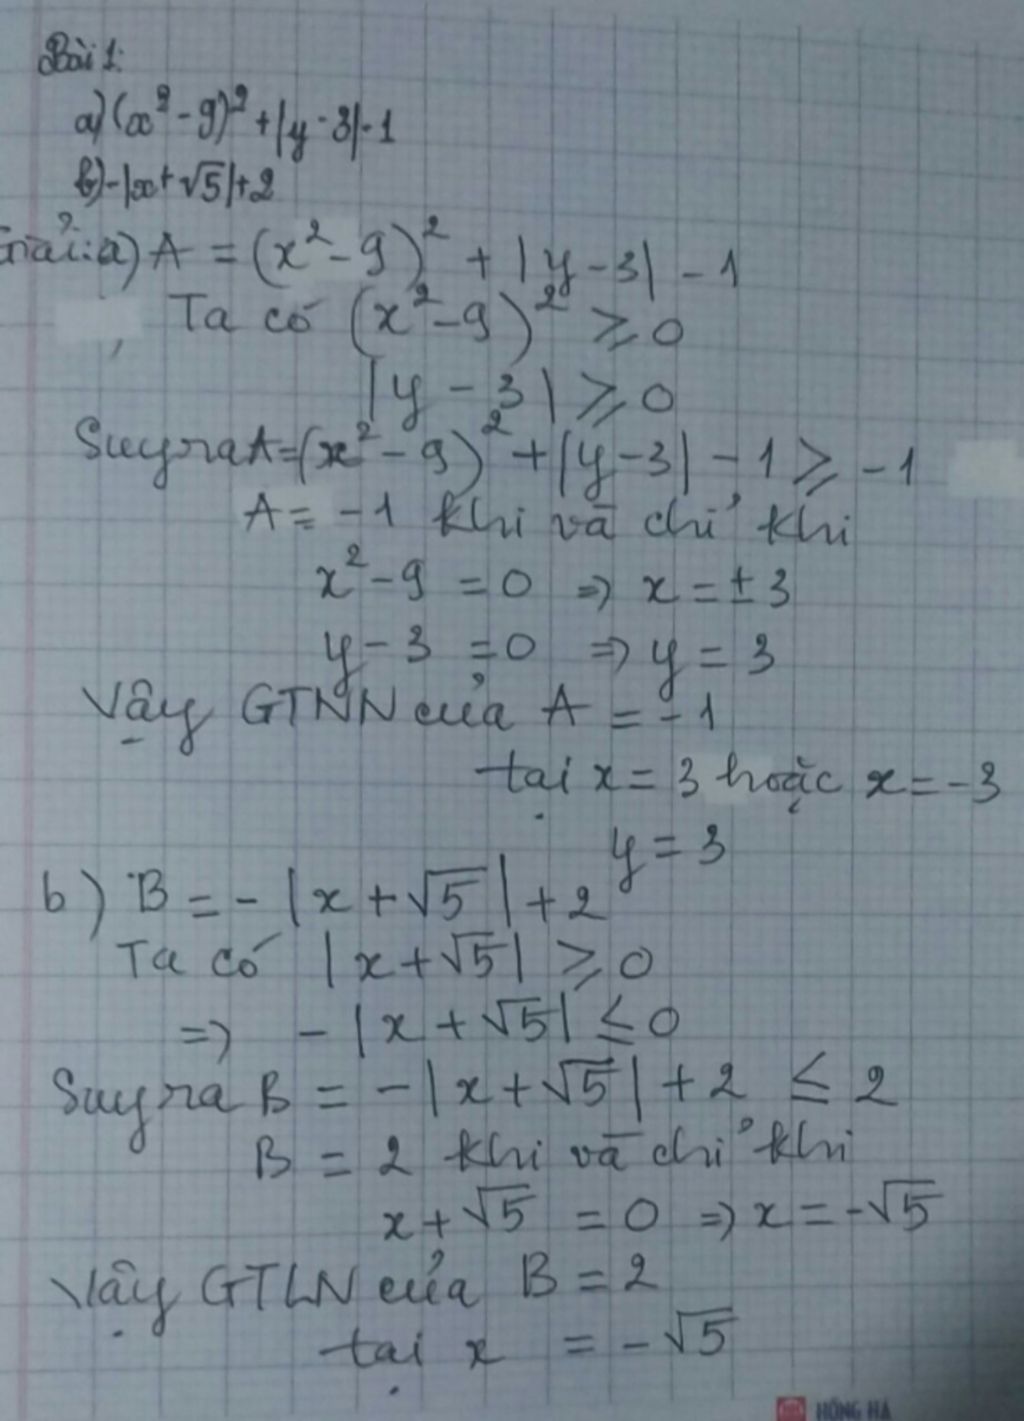 Bài 1:
a) (x² - 9)² + |y - 3| - 1
b) -|x + √5| + 2
Giải: a) A = (x² - 9)² + |y - 3| - 1
Ta có (x² - 9)² ≥ 0
|y - 3| ≥ 0
Suy ra A = (x² - 9)² + |y - 3| - 1 ≥ -1
A = -1 khi và chỉ khi
x² - 9 = 0 => x = ± 3
y - 3 = 0 => y = 3
Vậy GTNN của A = -1
tại x = 3 hoặc x = -3
y = 3
b) B = -|x + √5| + 2
Ta có |x + √5| ≥ 0
=> -|x + √5| ≤ 0
Suy ra B = -|x + √5| + 2 ≤ 2
B = 2 khi và chỉ khi
x + √5 = 0 => x = -√5
Vậy GTLN của B = 2
tại x = -√5
HỒNG HÀ